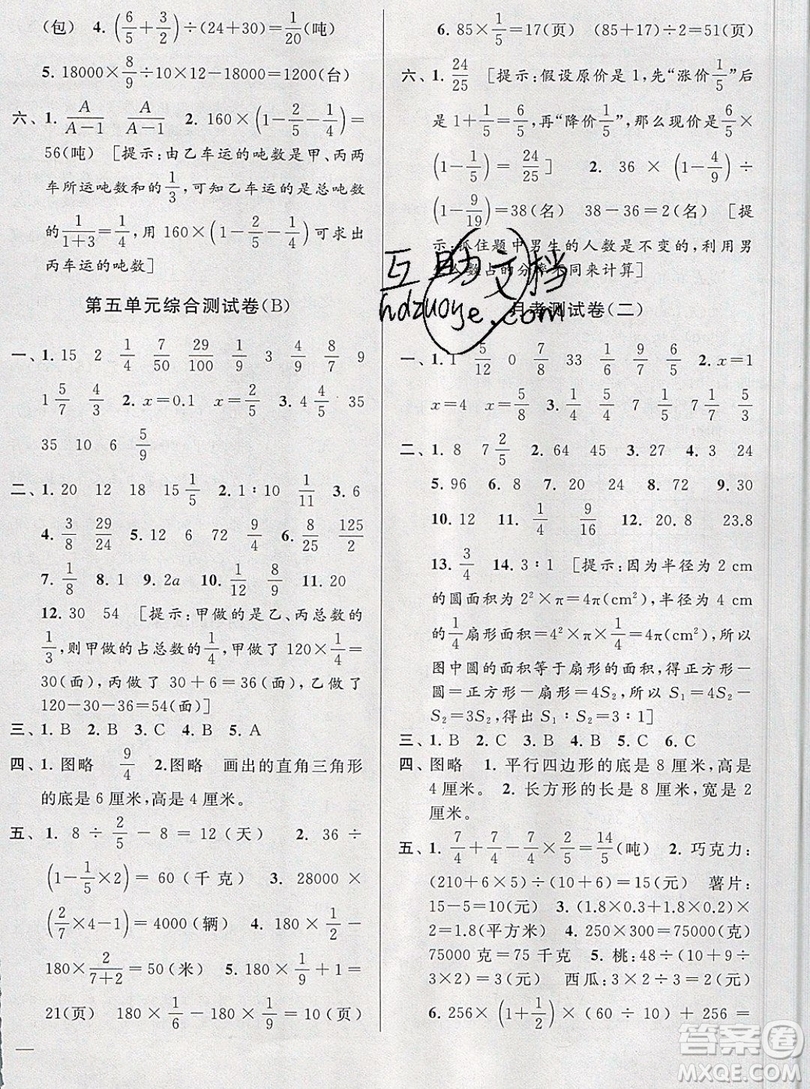 (包) 4. (6/5+3/2)÷(24+30)=1/20(吨)
5. 18000×8/9÷10-18000=1200(台)
六、1. A/A-1 A/A-1 2. 160×(1-2/5-1/4)=
56(吨) [提示:由乙车运的吨数是甲、丙两
车所运吨数和的1/3,可知乙车运的是总吨数
的1/1+3=1/4,用 160×(1-2/5-1/4)可求出
丙两车运的吨数]
第五单元综合测试卷(B)
一、1. 15 2 1/4 4/7 29/50 49/100 1/3 0
1 5/7 4/3 2. x=0.1 x=4/5 3. 4 4/5 35
35 10 6 5/9
二、1. 20 12 20 15 1/5 2. 1∶10 1/11 3. 6
4. 3/8 29/24 5. 40 72 4/9 9/4 6. 8/25 125/2
7. 1/8 8. 1 9. 2a 10. 40 11. 1/8 8/9
12. 30 54 [提示:甲做的是乙、丙总数的
1/3,则甲做的占总数的1/4,甲做了 120×1/4=
30(面),丙做了 30+6=36(面),乙做了
120-30-36=54(面)]
三、1. B 2. B 3. C 4. B 5. A
四、1. 图略 9/4 2. 图略 画出的直角三角形
的底是 6 厘米,高是 4 厘米。
五、1. 8÷2/5-8=12(天) 2. 36÷
(1-1/5×2)=60(千克) 3. 28000×
(2/7×4-1)=4000(辆) 4. 180×1/2-
180×2/7+2=50(米) 5. 180×(1/6-1/20)=
21(页) 180×1/6-180×1/9=10(页)
6. 85×1/5=17(页) (85+17)÷2=51(页)
六、1. 24/25 [提示:假设原价是 1,先“涨价1/5”后
是 1+1/5=6/5,再“降价1/5”,那么现价是6/5×
(1-1/5)=24/25] 2. 36×(1-4/9)÷
(1-9/19)=38(名) 38-36=2(名) [提
示:抓住题中男生的人数是不变的,利用男
生人数占的分率不同来计算]
互助文档
hdzuoye.com
月考测试卷(二)
一、1. 1 5/12 0 7/8 1/33 6/7 9/6 6/5 2. x=1
x=4 x=5/8 3. 1/4 5/8 5/7 1/5 7/9 1/11
二、1. 8 7 2/5 2. 64 45 3. 27 4. 3 24
5. 96 6. 8 7. 3 8. 9 9. 60
10. 12 11. 1/4 9/16 12. 20.8 23.8
13. 3/4 14. 3∶1 [提示:因为半径是 2 cm
的圆面积为 2²×π=4π(cm²),半径是 4 cm
的1/4扇形面积=4²×π×1/4=4π(cm²),所以
图中圆的面积等于扇形的面积,得出正方形-
圆=正方形-扇形=4S₂,所以 S₁=4S₂-
S₂=3S₂,得出 S₁∶S₂=3∶1]
三、1. B 2. C 3. B 4. B 5. C 6. C
四、图略 1. 平行四边形的底是 8 厘米,高是
4 厘米。 2. 长方形的长是 8 厘米,宽是 2
厘米。
五、1. 7/4+7/4-7/4×2/5=14/5(吨) 2. 巧克力:
(210+6×5)÷(11+5)=15(元) 薯片:
15-5=10(元) 3. (1.8×0.3+1.8×0.2)×
2=1.8(平方米) 4. 250×300=75000(克)
75000 克=75 千克 5. 桃:48÷(10+9÷
3×2)=3(元) 西瓜:3×2÷3=2(元)
6. 256×(1-1/2)×(60÷10)=
答案圈
MXQE.COM